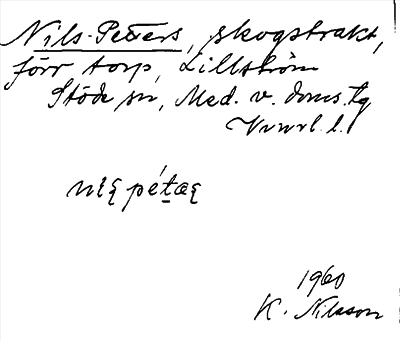 Nils-Peters, skogstrakt,
förr torp, Lillström
Stöde sn, Med. v. doms. tg
Vvnrl. l.
nįę pétaę
1960
K. Nilsson